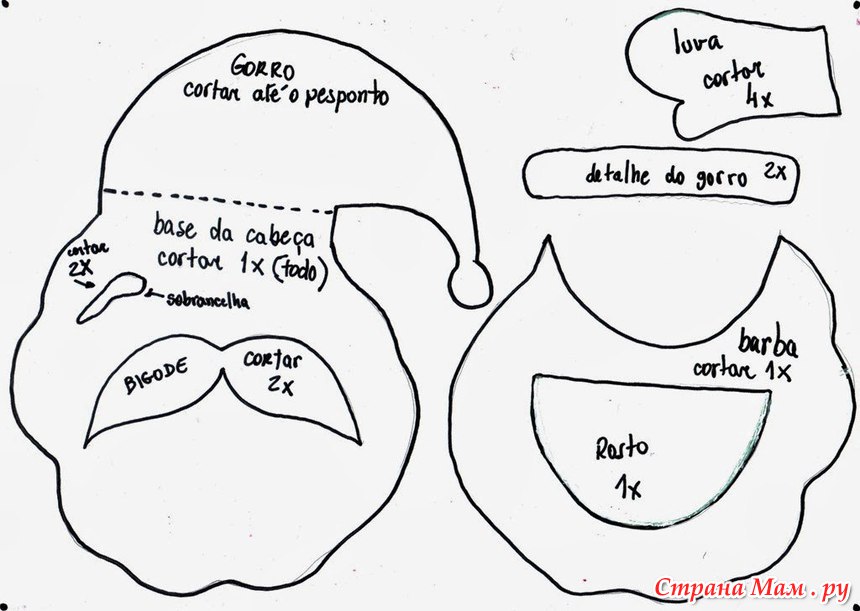 GORRO
cortar até o pesponto
luva
cortar
4x
detalhe do gorro 2x
base da cabeça
cortar 1x (todo)
cortar
2x
sobrancelha
BIGODE
cortar
2x
barba
cortar 1x
Rosto
1x
Страна Мам.ру